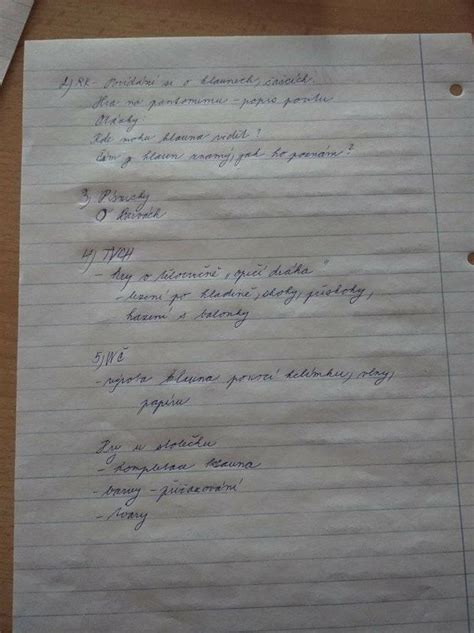 2) RK - Povídání si o klaunech, šašcích
Hra na pantomimu - popis pocitu
Otázky:
Kde mohu klauna vidět?
Čím je klaun známý, jak ho poznám?
3) Písničky
O barvách
4) TVCH
- hry v tělocvičně "opičí dráha"
- lezení po kladině, skoky, přeskoky,
házení s balonky
5) VČ
- výroba klauna pomocí kelímku, vlny,
papíru
Hry u stolečku
- kompletace klauna
- barvy - přiřazování
- tvary